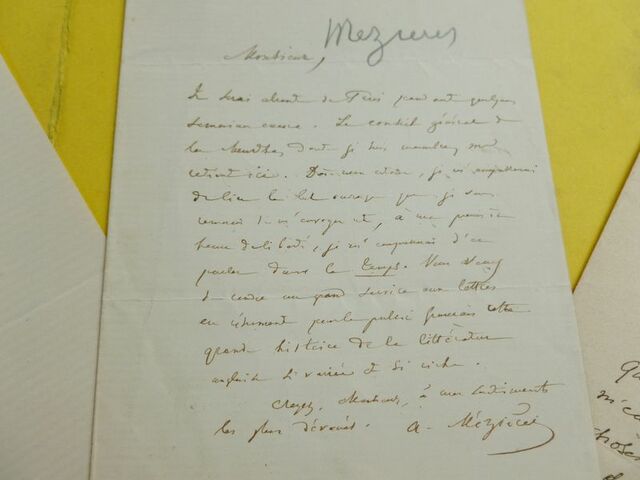 Mezieres
Monsieur,
Je serai absent de Paris pendant quelques
semaines encore. Le conseil général de
la Meurthe, dont je suis membre, me
retient ici. Dès mon retour, je m'empresserai
de lire le bel ouvrage que je vous
remercie de m'envoyer et, à ma première
heure de liberté, je m'occuperai d'en
parler dans le Temps. Vous venez
de rendre un grand service aux lettres
en résumant pour le public français cette
grande histoire de la littérature
anglaise si variée et si riche.
Croyez, Monsieur, à mes sentiments
les plus dévoués. A. Mézières
Qu
m'e
chose
d